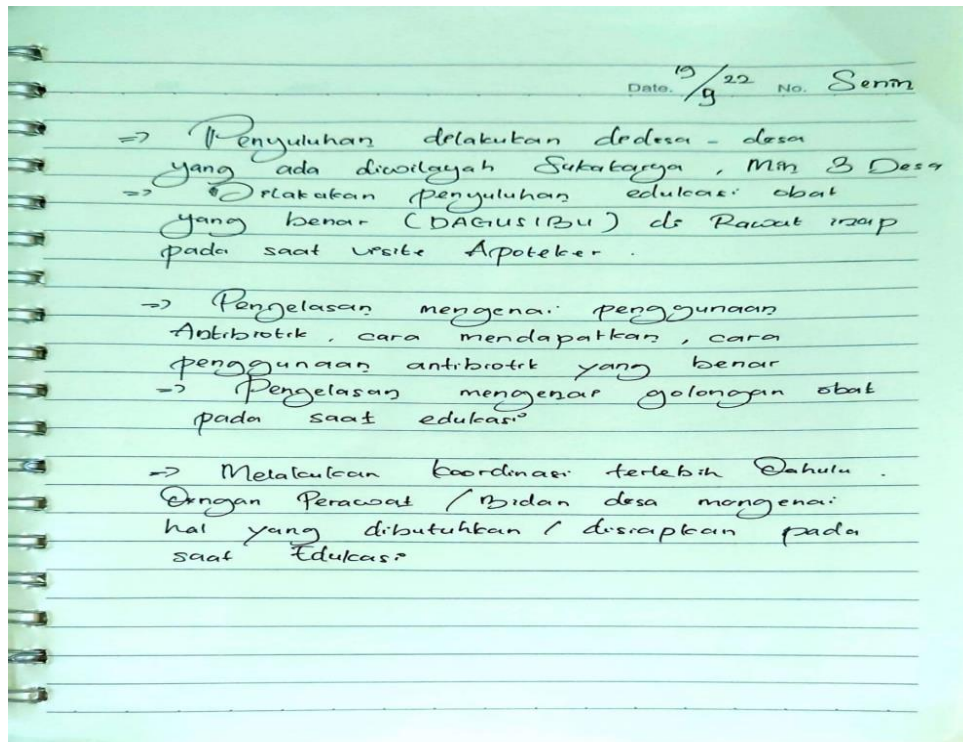 Date. 19/9 22 No. Senin
=> Penyuluhan dilakukan didesa - desa
yang ada diwilayah Sukakarya, Min 3 Desa
=> Dilakukan penyuluhan edukasi obat
yang benar (DAGUSIBU) di Rawat inap
pada saat visite Apoteker.
=> Penjelasan mengenai penggunaan
Antibiotik, cara mendapatkan, cara
penggunaan antibiotik yang benar
=> Penjelasan mengenai golongan obat
pada saat edukasi
=> Melakukan koordinasi terlebih Dahulu.
Dengan Perawat / Bidan desa mengenai
hal yang dibutuhkan / disiapkan pada
saat Edukasi